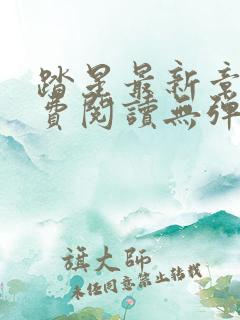 踏星最新章
費閱讀無彈
旗大師
未經同意禁止轉載